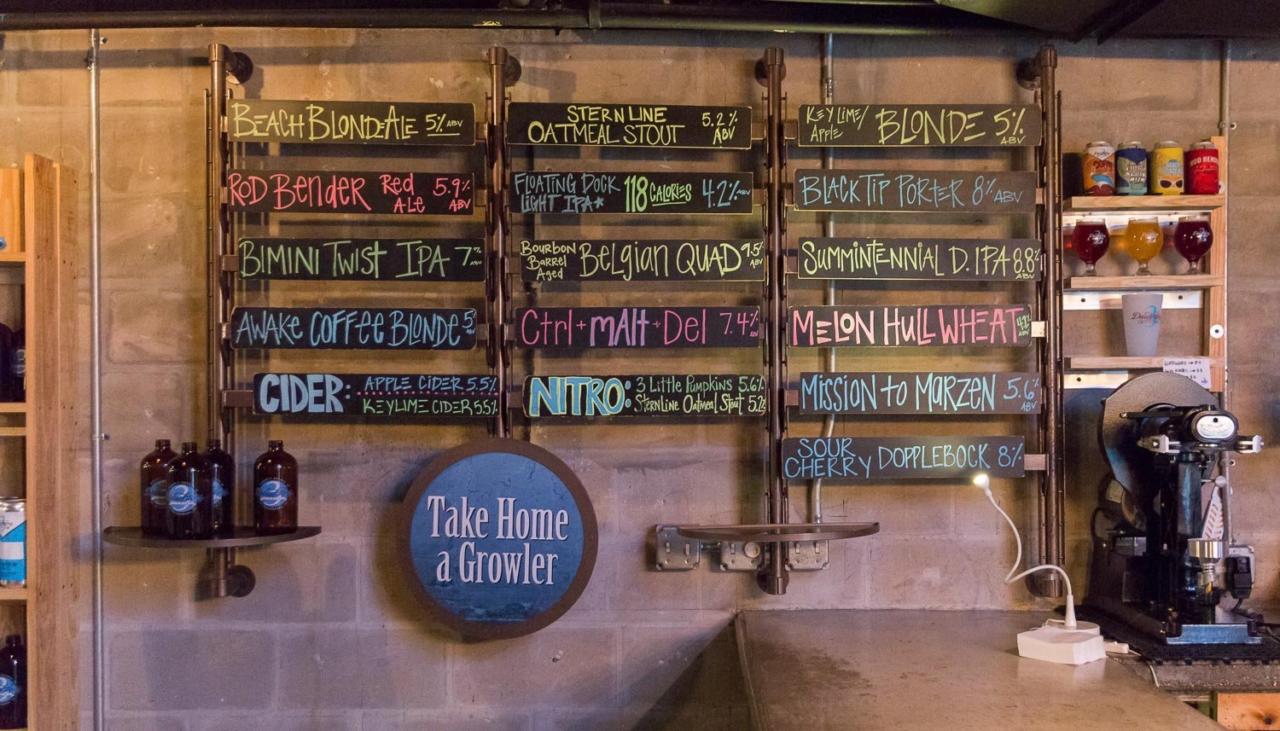 BEACH BLONDE ALE 5% ABV
ROD BENDER RED ALE 5.9% ABV
BIMINI TWIST IPA 7%
AWAKE COFFEE BLONDE 5
CIDER: APPLE CIDER 5.5%
KEYLIME CIDER 5.5%
STERN LINE
OATMEAL STOUT 5.2% ABV
FLOATING DOCK
LIGHT IPA* 118 CALORIES 4.2% ABV
Bourbon Barrel Aged BELGIAN QUAD 9.5%
Ctrl + MAlt + Del 7.4%
NITRO: 3 Little Pumpkins 5.6%
SternLine Oatmeal Stout 5.2
KEY LIME/
Apple BLONDE 5% ABV
BLACK TIP PORTER 8% ABV
SUMMINTENNIAL D. IPA 8.8%
MELON HULL WHEAT
MISSION TO MARZEN 5.6% ABV
SOUR
CHERRY DOPPLEBOCK 8%
Take Home
a Growler